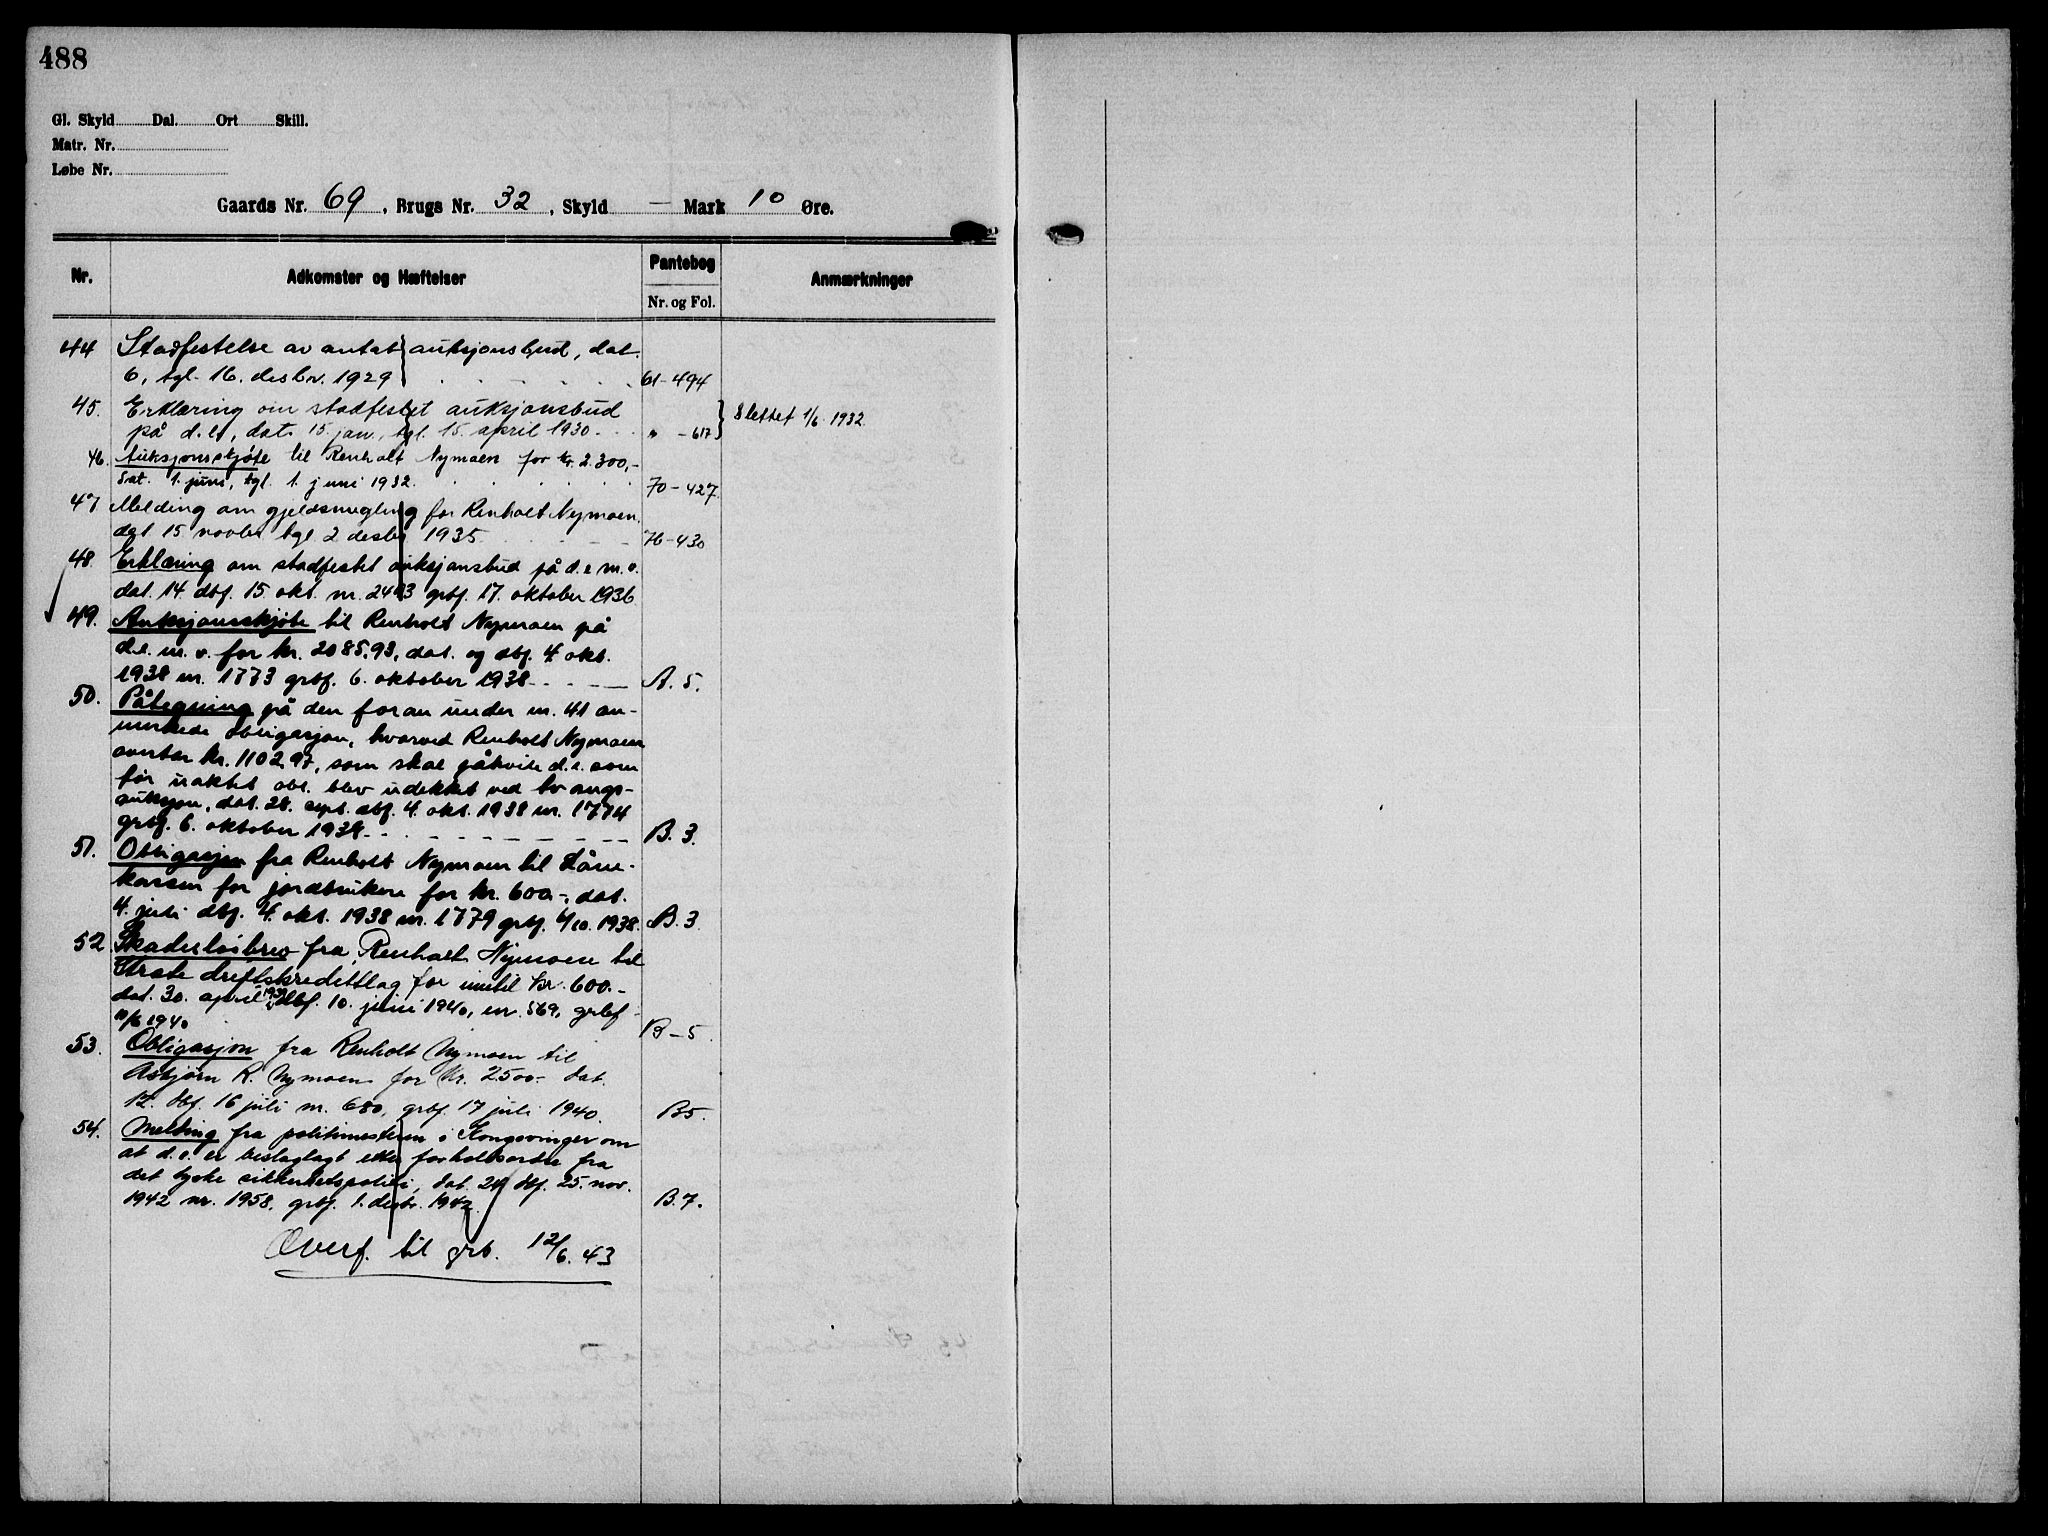 488
Gl. Skyld Dal. Ort Skill.
Matr. Nr.
Løbe Nr.
Gaards Nr. 69, Brugs Nr. 32, Skyld — Mark 10 Øre.
Nr. Adkomster og Hæftelser Pantebog Anmærkninger
Nr. og Fol.
44 Stadfestelse av antat auksjonsbud, dat.
6, tgl. 16. desbr. 1929 61-494
45. Erklæring om stadfestet auksjonsbud
på d.e., dat. 15. jan., tgl. 15. april 1930. " -617 Slettet 1/6 1932.
46. Auksjonsskjøte til Renholt Nymoen for kr. 2.300,-
dat. 1. juni, tgl. 1. juni 1932. 70-427.
47 Melding om gjeldsmegling for Renholt Nymoen.
dat 15 novbr tgl 2 desbr 1935 76-430
48. Erklæring om stadfestet auksjonsbud på d.e m.v.
dat. 14 dbf. 15. okt. nr. 2403 grbf. 17. oktober 1936
49. Auksjonsskjøte til Renholt Nymoen på
d.e. m. v. for kr. 2085,93, dat. og dbf. 4. okt.
1938 nr. 1773 grbf. 6. oktober 1938 A. 5.
50. Påtegning på den foran under nr. 41 an-
merkede obligasjon, hvorved Renholt Nymoen
overtar kr. 1102 97, som skal påhvile d.e. som
før nevnte obl. blev udekket ved tvangs-
auksjon, dat. 28. sept. dbf. 4. okt. 1938 nr. 1774
grbf. 6. oktober 1938 B. 3.
51. Obligasjon fra Renholt Nymoen til Låne-
kassen for jordbrukere for kr. 600.-, dat.
4. juli dbf. 4. okt. 1938 nr. 1779 grbf. 6/10. 1938. B. 3.
52 Skadesløsbrev fra Renholt Nymoen til
driftskredittlag for inntil kr. 600.-
dat. 30. april 1939 dbf. 10. juni 1940, nr. 569, grbf
10/6 1940 B-5.
53. Obligasjon fra Renholt Nymoen til
Asbjørn R. Nymoen for kr. 2500.- dat.
12. dbf. 16 juli nr. 680, grbf. 17 juli 1940. B5.
54. Melding fra politimesteren i Kongsvinger om
at d.e. er beslaglagt etter forholdsordre fra
det tyske sikkerhetspoliti, dat. 24 dbf. 25. nov.
1942 nr. 1958, grbf. 1. desbr. 1942. B. 7.
Overf. til grb. 12/6. 43